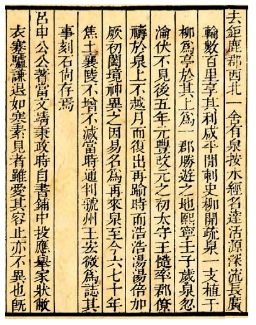 去鉅鹿郡西北一舍有泉按水經名達活源深流長廣
輪數百里享其利咸平間刺史柳開疏泉一支植千
柳為亭於其上為一郡勝遊之地熙寧壬子歲泉忽
淪伏不見後五年元豐改元之初太守王慥率郡僚
禱於泉上不越月而復出再踰時而浩浩湯湯倍加
厥初闔境神異之因易名為再來泉至今六七十年
焦土襄陵不增不減當時通判虢州王安薇為誌其
事刻石尚存焉
呂申公公著當文靖秉政時自書鋪中投應舉家狀敝
衣蹇驢謙退如寒素見者雖愛其容止亦不異也既